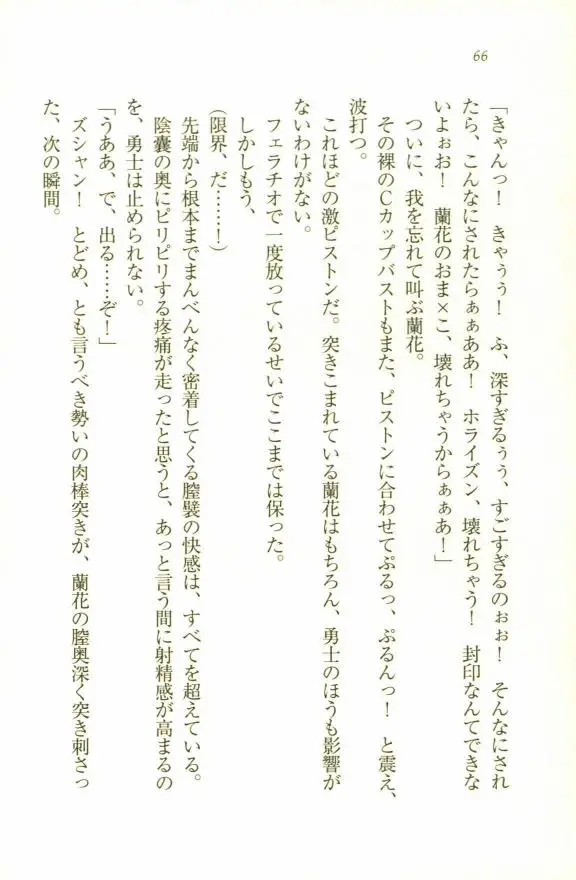 66
「きゃんっ！　きゃうぅ！　ふ、深すぎるぅぅ、すごすぎるのぉぉ！　そんなにされ
たら、こんなにされたらぁぁああ！　ホライズン、壊れちゃう！　封印なんてできな
いよぉお！　蘭花のおま×こ、壊れちゃうからぁぁあ！」
ついに、我を忘れて叫ぶ蘭花。
その裸のCカップバストもまた、ピストンに合わせてぷるっ、ぷるんっ！　と震え、
波打つ。
これほどの激ピストンだ。突きこまれている蘭花はもちろん、勇士のほうも影響が
ないわけがない。
フェラチオで一度放っているせいでここまでは保った。
しかしもう、
(限界、だ……！)
先端から根本までまんべんなく密着してくる膣襞の快感は、すべてを超えている。
陰囊の奥にピリピリする疼痛が走ったと思うと、あっと言う間に射精感が高まるの
を、勇士は止められない。
「うああ、で、出る……ぞ！」
ズシャン！　とどめ、とも言うべき勢いの肉棒突きが、蘭花の膣奥深く突き刺さっ
た、次の瞬間。